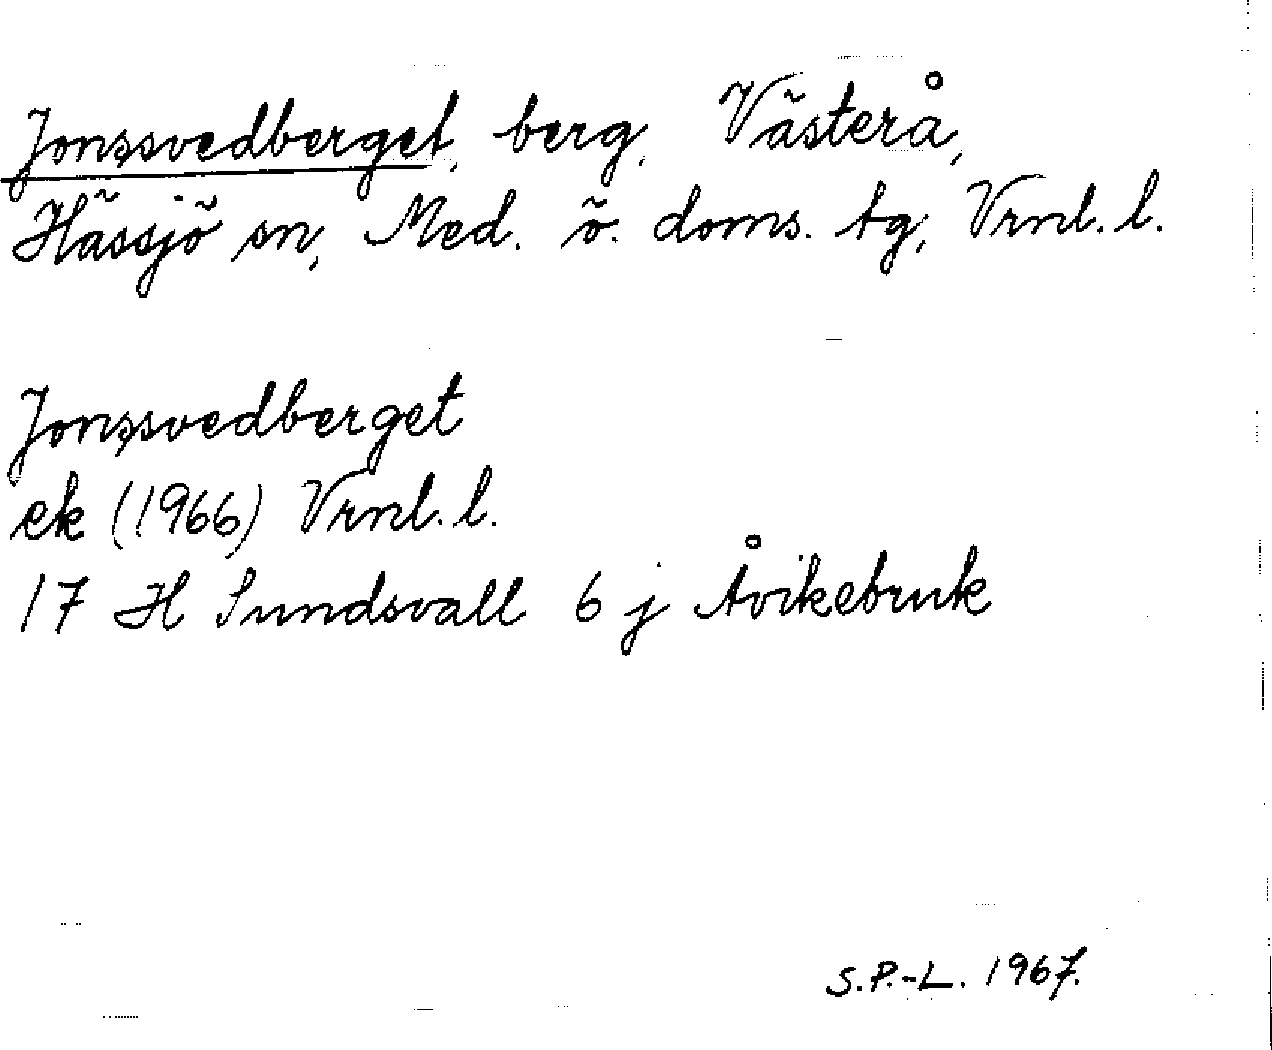 Jonssvedberget, berg, Västerå,
Hässjö sn, Med. ö. doms. tg, Vrnl. l.
Jonssvedberget
ek (1966) Vrnl. l.
17 H Sundsvall 6 j Åvikebruk
S.P.-L. 1967.